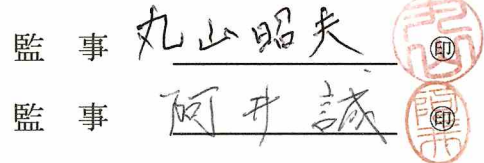 監事 丸山昭夫 ㊞
監事 阿井誠 ㊞